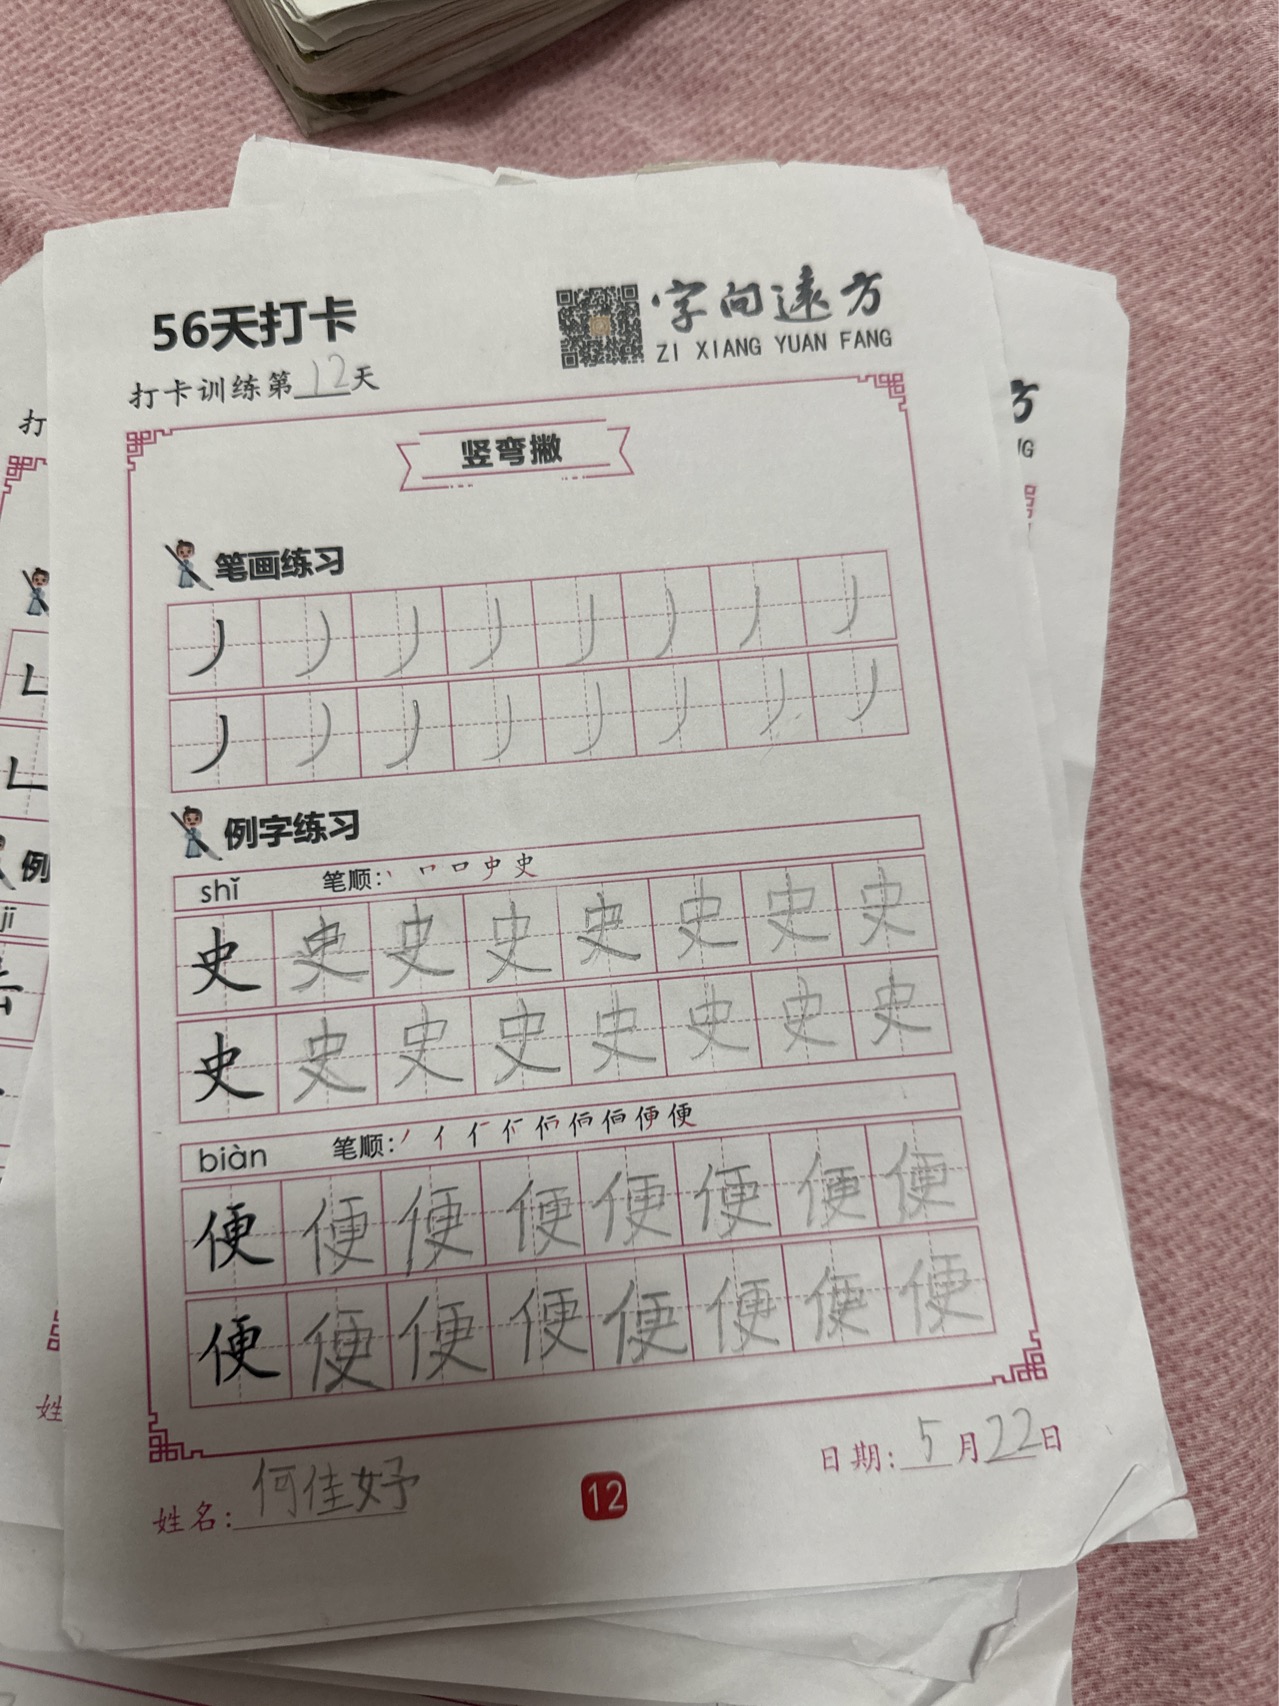 56天打卡
字向遠方
ZI XIANG YUAN FANG
打卡训练第12天
竖弯撇
笔画练习
丿丿丿丿丿丿丿丿
丿丿丿丿丿丿丿丿
例字练习
shǐ 笔顺: 丨 𠃍 口 史 史
史史史史史史史史
史史史史史史史史
biàn 笔顺:
便便便便便便便便
便便便便便便便便
日期: 5月22日
姓名: 何佳妤
12
打
方
NG
例
jī
姓